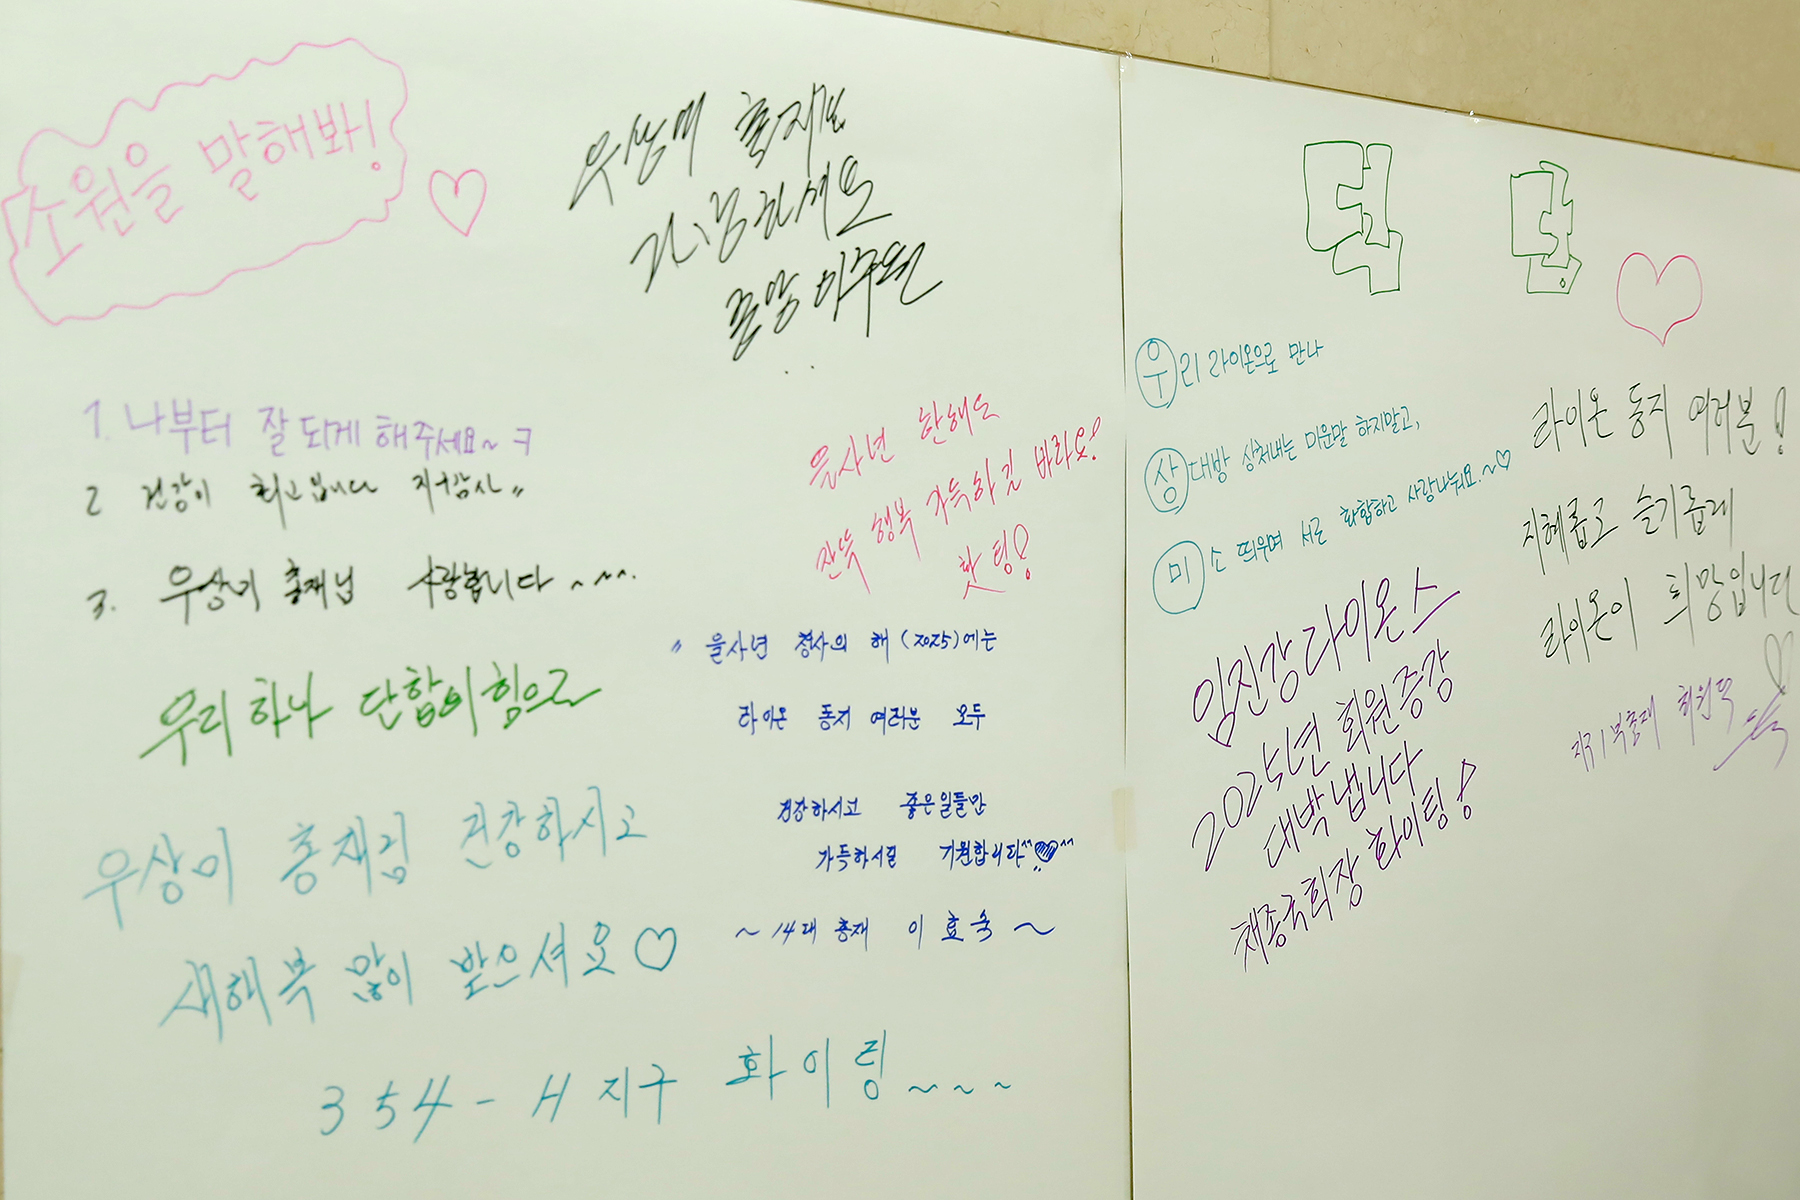 소원을 말해봐!
우상미 총재님
건강하세요
1. 나부터 잘 되게 해주세요~ ㅋ
2 건강이 최고입니다
3. 우상미 총재님 사랑합니다 ~~~.
우리 하나 단합의힘으로
우상미 총재님 건강하시고
새해 복 많이 받으셔요♡
354-H 지구 화이팅~~~
을사년 한해도
잔뜩 행복 가득하길 바라요!
홧팅!
〃 을사년 청사의 해 (2025)에는
라이온 동지 여러분 모두
건강하시고 좋은일들만
가득하시길 기원합니다^^♡^^
~ 14대 총재 이효숙 ~
덕담
우리 라이온으로 만나
상대방 상처내는 미운말 하지말고,
미소 띄우며 서로 화합하고 사랑나눠요.~♡
임진강라이온스
2025년 회원증강
대박냅니다
채종국회장 화이팅!
라이온 동지 여러분!
지혜롭고 슬기롭게
라이온이 희망입니다
지구1부총재